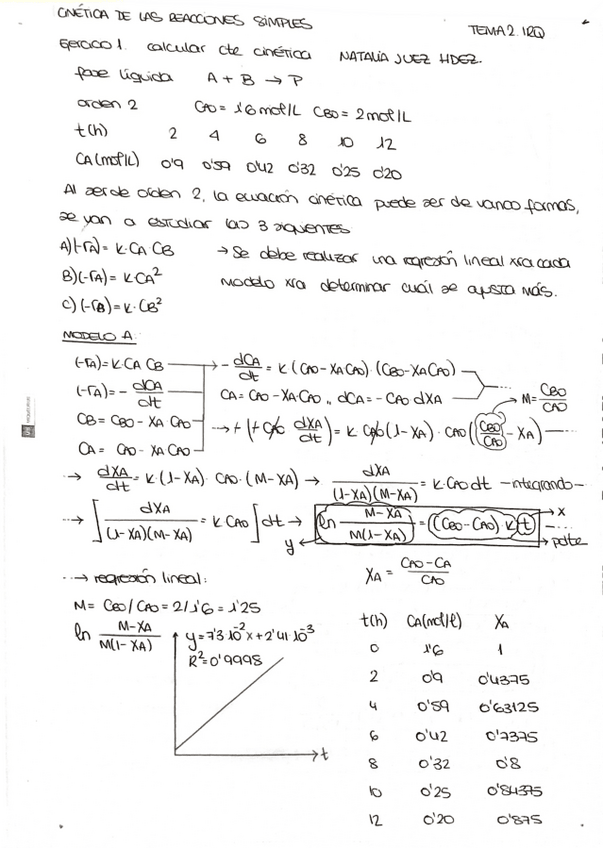 CINÉTICA DE LAS REACCIONES SIMPLES
TEMA 2. IRQ
Ejercicio 1. calcular cte cinética NATALIA JUEZ HDEZ.
fase líquida A + B → P
orden 2 CA0 = 1'6 mol/L CB0 = 2 mol/L
t(h) 2 4 6 8 10 12
CA (mol/L) 0'9 0'59 0'42 0'32 0'25 0'20
Al ser de orden 2, la ecuación cinética puede ser de varias formas,
se van a estudiar las 3 siguientes
A) (-rA) = K·CA CB → Se debe realizar una regresión lineal xra cada
B) (-rA) = K·CA² modelo xra determinar cuál se ajusta más.
C) (-rB) = K·CB²
MODELO A:
(-rA) = K·CA CB → - dCA/dt = K (CA0 - XA CA0)·(CB0 - XA CA0)
(-rA) = - dCA/dt CA = CA0 - XA·CA0 ,, dCA = - CA0 dXA → M = CB0/CA0
CB = CB0 - XA CA0 → + (+ CA0 dXA/dt) = K CA0 (1 - XA)· CA0 (CB0/CA0 - XA)
CA = CA0 - XA CA0
→ dXA/dt = K·(1-XA)· CA0·(M-XA) → dXA/(1-XA)(M-XA) = K·CA0 dt -integrando-
→ [dXA/(1-XA)(M-XA) = K CA0] dt → ln M-XA/M(1-XA) = (CB0-CA0) K t → x
y → pdte
→ regresión lineal: XA = CA0-CA/CA0
M = CB0/CA0 = 2/1'6 = 1'25
ln M-XA/M(1-XA) y = 7'3·10⁻²x + 2'41·10⁻³
R² = 0'9998
t
t(h) CA(mol/l) XA
0 1'6 1
2 0'9 0'4375
4 0'59 0'63125
6 0'42 0'7375
8 0'32 0'8
10 0'25 0'84375
12 0'20 0'875